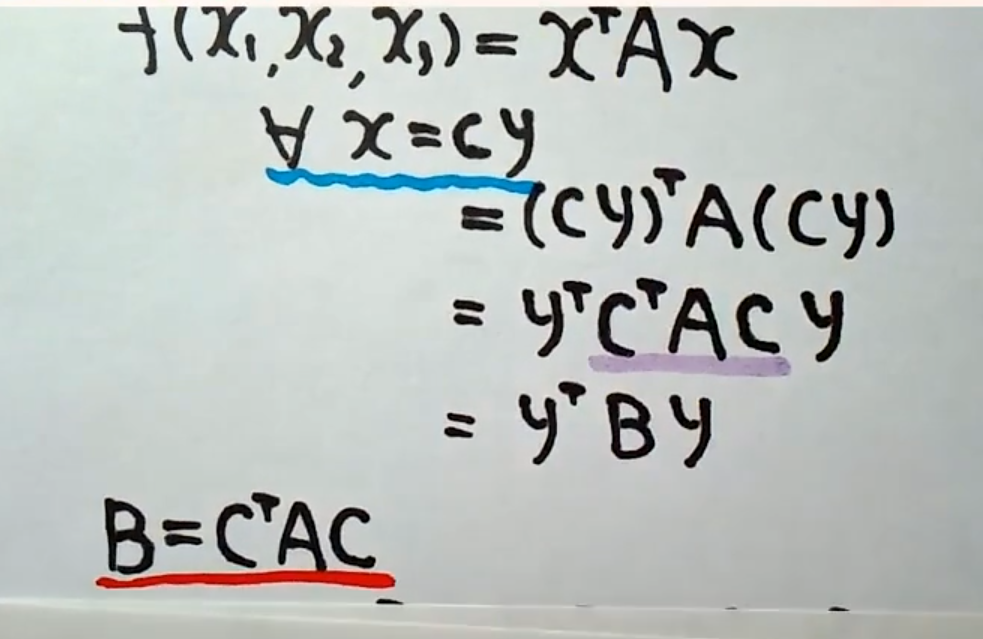 f(x₁, x₂, x₃) = xᵀAx
∀ x = Cy
= (Cy)ᵀA(Cy)
= yᵀCᵀACy
= yᵀBy
B = CᵀAC